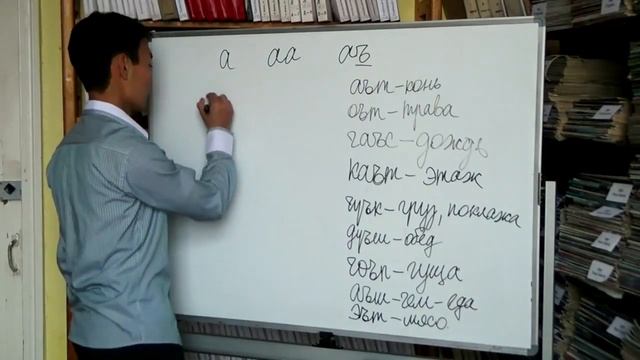 а аа аъ
аът - конь
оът - трава
чаъс - дождь
каът - этаж
чүък - груз, поклажа
дүъш - обед
чоъп - гуща
аъш-чем - еда
эът - мясо